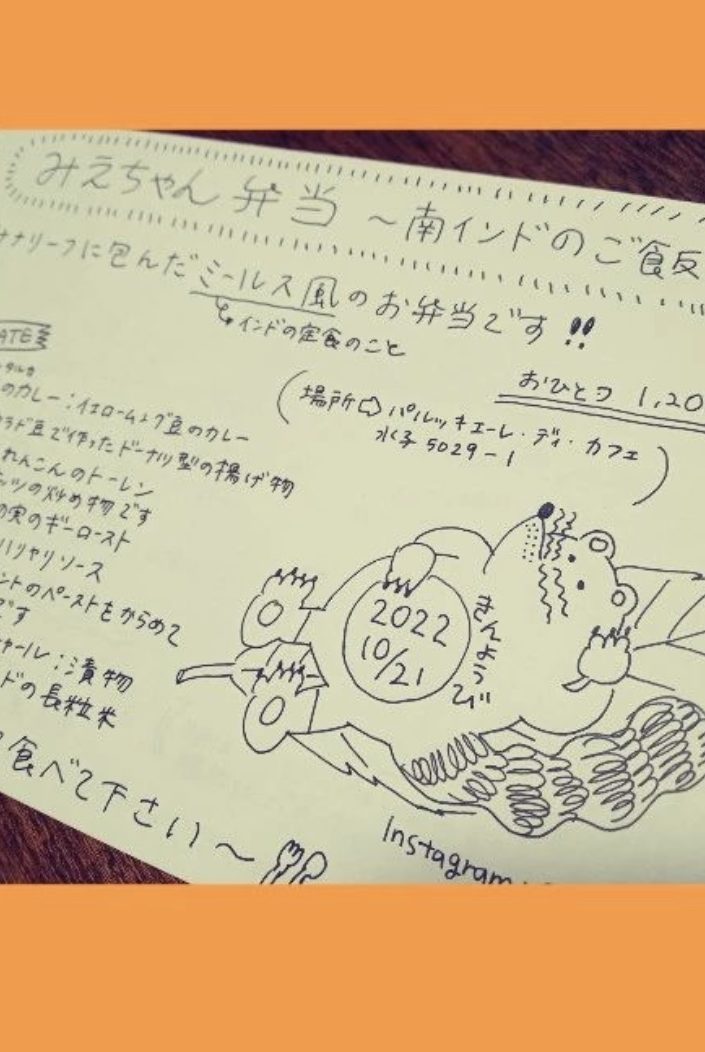 みえちゃん 弁当 ～南インドのご飯
ナナリーフに包んだミールス風のお弁当です!!
↳インドの定食のこと
おひとつ 1,20
(場所⇨パルッキエーレ・ディ・カフェ
水子5029-1)
ATE
のカレー：イエロームング豆のカレー
ラド豆で作ったドーナツ型の揚げ物
れんこんのトーレン
ッツの炒め物です
の実のギーロースト
ハリヤリソース
ントのペーストをからめて
です
ャール：漬物
ドの長粒米
食べて下さい〜
2022
10/21
きんようび
Instagram